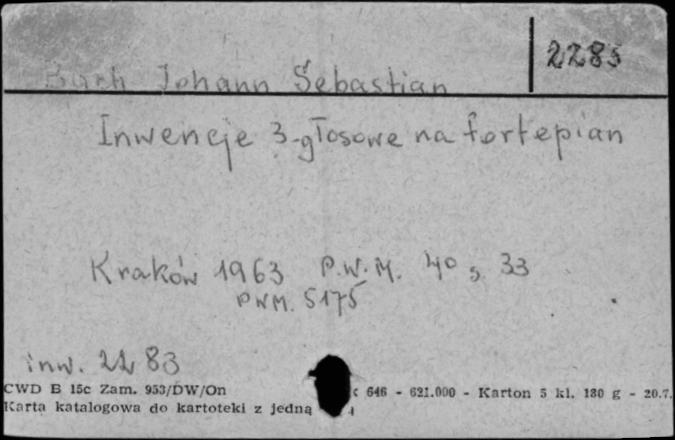 2283
Bach Johann Sebastian
Inwencje 3-głosowe na fortepian
Kraków 1963 P.W.M. 4° s. 33
PWM. 5175
inw. 2283
CWD B 15c Zam. 953/DW/On 646 - 621.000 - Karton 5 kl. 180 g - 20.7.
Karta katalogowa do kartoteki z jedną